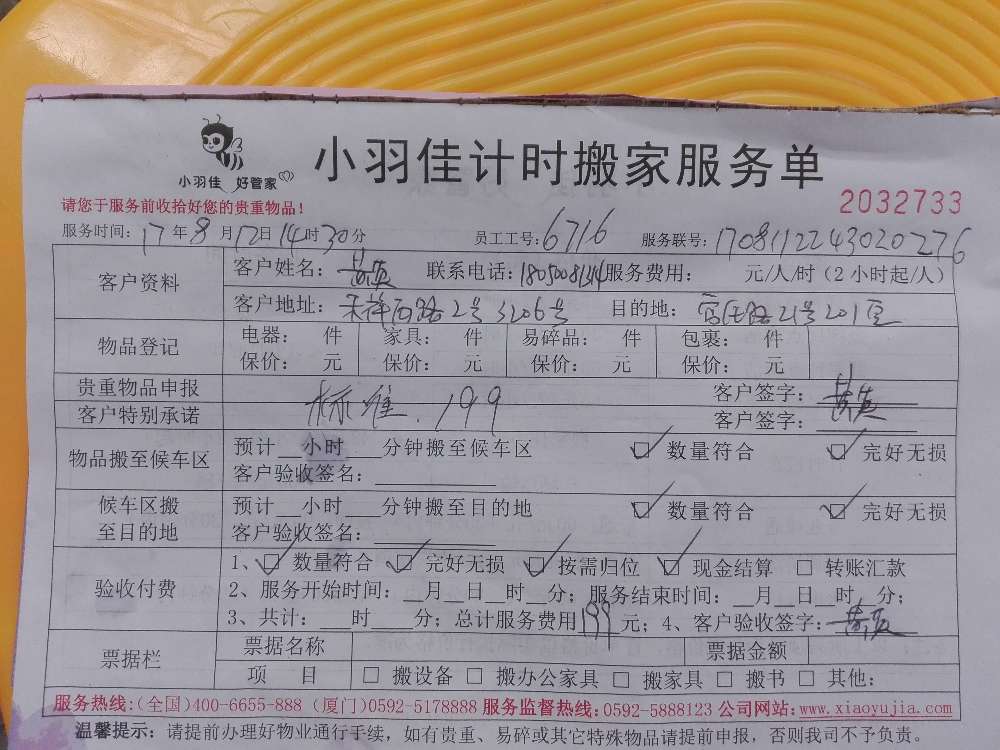 小羽佳 好管家
小羽佳计时搬家服务单
2032733
请您于服务前收拾好您的贵重物品!
服务时间: 17 年 8 月 12 日 14 时 30 分 员工工号: 6716 服务联号: 170811224302027​6
客户资料 客户姓名: 黄英 联系电话: 服务费用: 元/人/时 (2小时起/人)
客户地址: 禾祥西路2号3206号 目的地: 路21号201室
物品登记 电器: 件 家具: 件 易碎品: 件 包裹: 件
保价: 元 保价: 元 保价: 元 保价: 元
贵重物品申报 标准.199 客户签字: 黄英
客户特别承诺 客户签字:
物品搬至候车区 预计__小时___分钟搬至候车区 ☑ 数量符合 ☑ 完好无损
客户验收签名:
候车区搬至目的地 预计__小时___分钟搬至目的地 ☑ 数量符合 ☑ 完好无损
客户验收签名:
验收付费 1、☑ 数量符合 ☑ 完好无损 ☑ 按需归位 ☑ 现金结算 □ 转账汇款
2、服务开始时间: __月__日__时__分; 服务结束时间: __月__日__时__分;
3、共计: __时___分; 总计服务费用199元; 4、客户验收签字: 黄英
票据栏 票据名称 票据金额
项 目 □ 搬设备 □ 搬办公家具 □ 搬家具 □ 搬书 □ 其他:
服务热线:(全国)400-6655-888 (厦门)0592-5178888 服务监督热线:0592-5888123 公司网站:www.xiaoyujia.com
温馨提示: 请提前办理好物业通行手续, 如有贵重、易碎或其它特殊物品请提前申报, 否则我司不予负责。